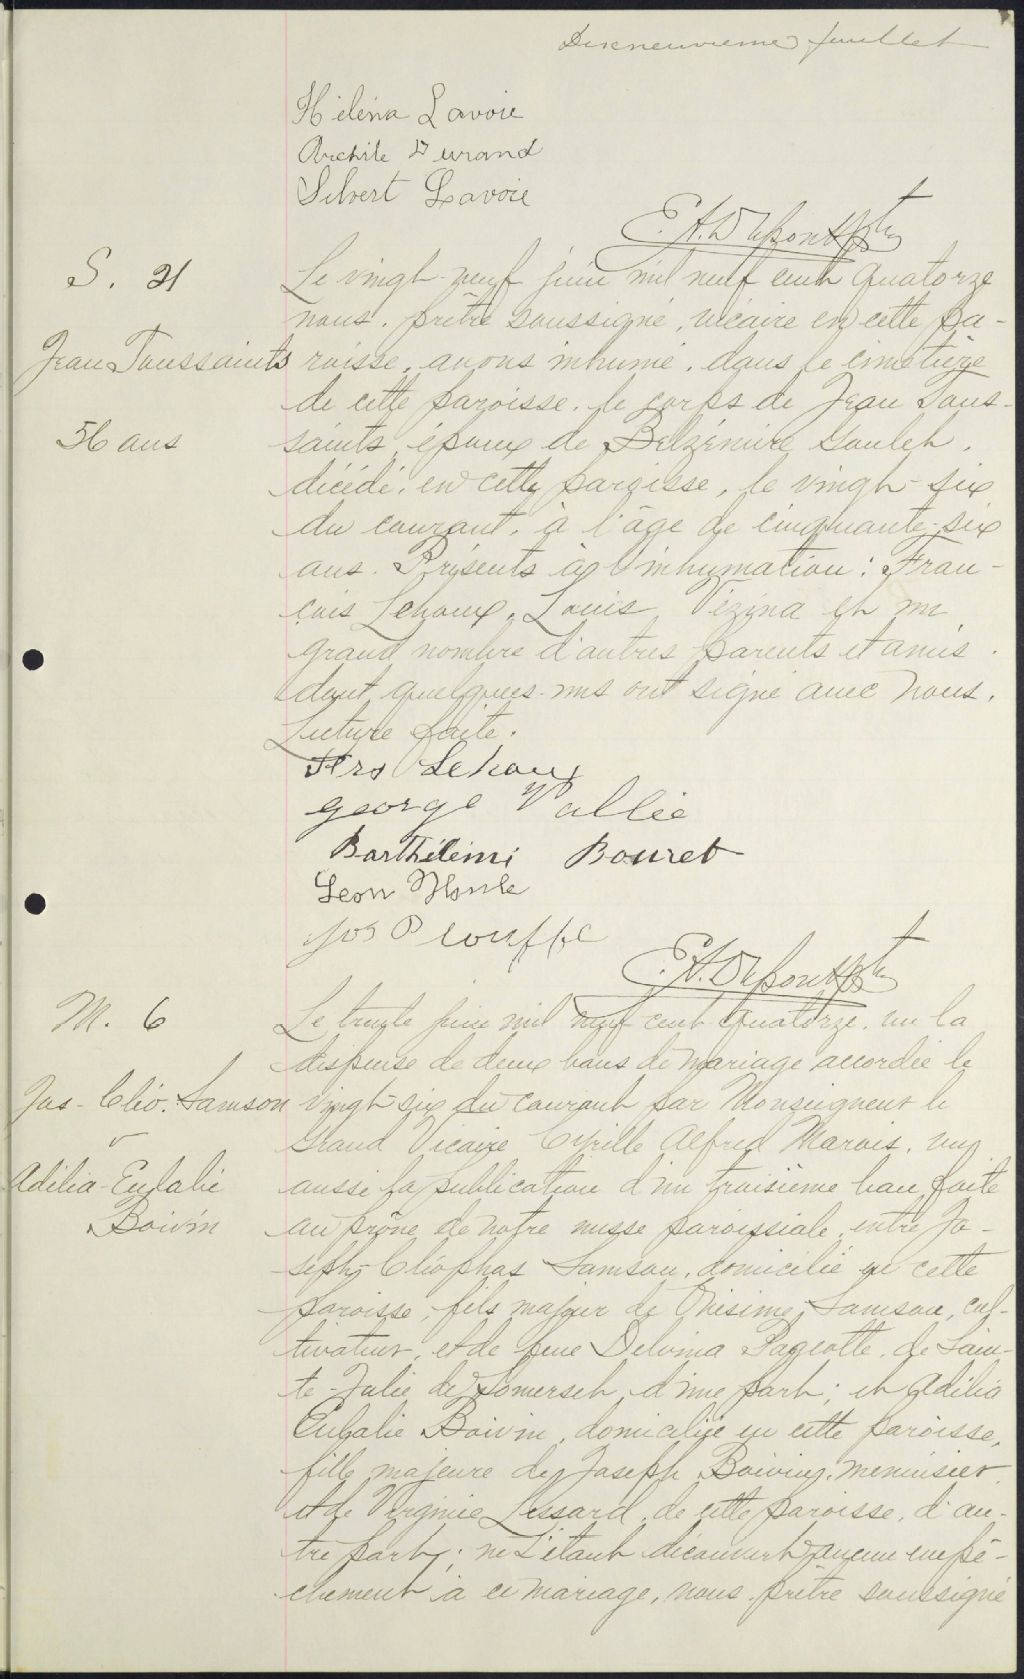 Dixneuvieme feuillet
Hélèna Lavoie
Archile Durand
Silvert Lavoie
E. A. Dupont Ptre
S. 21
Le vingt-neuf juin mil neuf cent quatorze
nous, prêtre soussigné, vicaire en cette pa-
Jean Toussaints
roisse, avons inhumé, dans le cimetière
de cette paroisse, le corps de Jean Tous-
56 ans
saints, époux de Belzémire Goulet,
décédé, en cette paroisse, le vingt-six
du courant, à l'âge de cinquante-six
ans. Présents à l'inhumation: Fran-
çois Lehoux, Louis Vézina et un
grand nombre d'autres parents et amis
dont quelques-uns ont signé avec nous.
Lecture faite.
Frs Lehoux
George Vallie
Barthélémi Bouret
Leon
Jos Plouffe
E. A. Dupont Ptre
M. 6
Le trente juin mil neuf cent quatorze, vu la
dispense de deux bans de mariage accordée le
Jos-Cléo. Samson
vingt-six du courant par Monseigneur le
v
Grand Vicaire Cyrille Alfred Marois, vu
Adilia-Eulalie
aussi la publication d'un troisième ban faite
Boivin
au prône de notre messe paroissiale, entre Jo-
seph-Cléophas Samson, domicilié en cette
paroisse, fils majeur de Onésime Samson, cul-
tivateur, et de feue Delvina Pageotte, de Sain-
te-Julie de Somerset, d'une part; et Adilia
Eulalie Boivin, domiciliée en cette paroisse,
fille majeure de Joseph Boivin, menuisier
et de Virginie Lessard, de cette paroisse, d'au-
tre part; ne s'étant découvert aucun empê-
chement à ce mariage, nous, prêtre soussigné